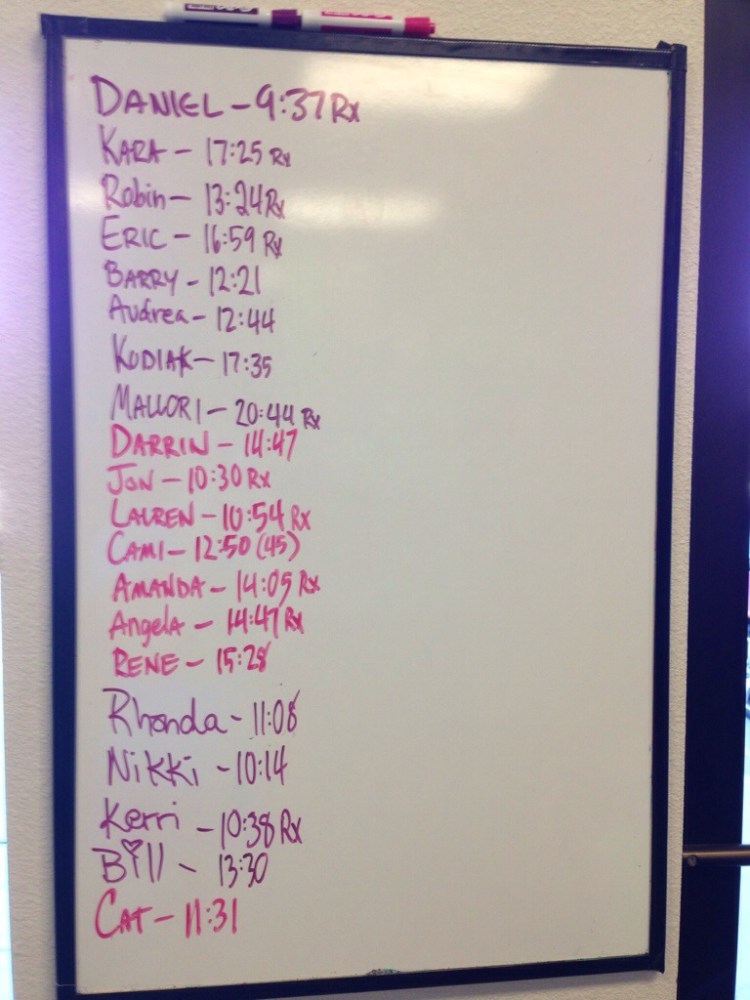 DANIEL - 9:37 Rx
KARA - 17:25 Rx
Robin - 13:24 Rx
ERIC - 16:59 Rx
BARRY - 12:21
Audrea - 12:44
KODIAK - 17:35
MALLORI - 20:44 Rx
DARRIN - 14:47
JON - 10:30 Rx
LAUREN - 10:54 Rx
CAMI - 12:50 (45)
AMANDA - 14:05 Rx
Angela - 14:47 Rx
RENE - 15:28
Rhonda - 11:08
Nikki - 10:14
Kerri - 10:38 Rx
Bill - 13:30
CAT - 11:31